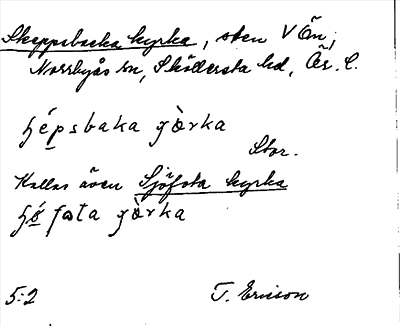 Skeppsbacka kyrka, sten V Ön;
Norrbyås sn, Sköllersta hd, Ör. l.
ɧépsbaka ɟòrka
Stor.
Kallas även Sjöfota kyrka
ɧó fota ɟòrka
5:2
T. Ericson